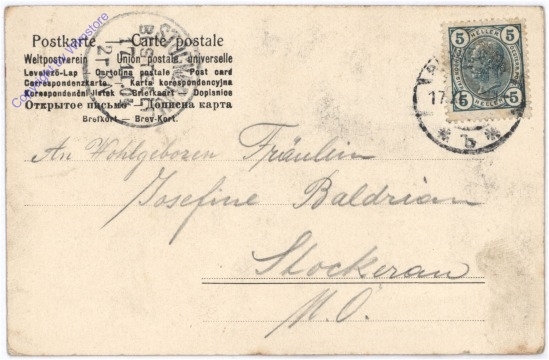 Postkarte — Carte postale
Weltpostverein — Union postale universelle
Levelező-Lap — Cartolina postale — Post card
Correspondenzkarte — Karta korespondencyjna
Korespondenční lístek — Briefkaart — Dopisnice
Открытое письмо — Дописна карта
Brefkort — Brev-Kort.
5 HELLER 5
5 HELLER 5
17
* b *
An Wohlgeboren Fräulein
Josefine Baldrian
Stockerau
N.O.